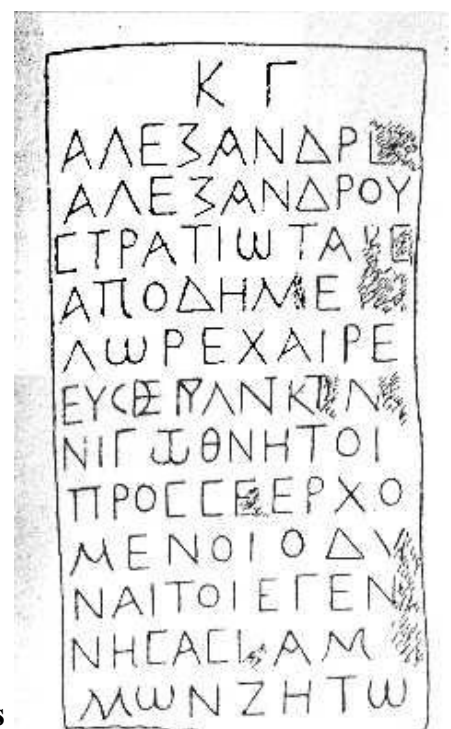 Κ Γ
ΑΛΕΞΑΝΔΡ
ΑΛΕΞΑΝΔΡΟΥ
ϹΤΡΑΤΙωΤΑ
ΑΠΟΔΗΜΕ
ΛωΡΕΧΑΙΡΕ
ΘΝΗΤΟΙ
ΠΡΟϹϹΕΕΡΧΟ
ΜΕΝΟΙΟΔΥ
ΝΑΙΤΟΙΕΓΕΝ
ΝΗϹΑϹΙΑΜ
ΜωΝΖΗΤω
s